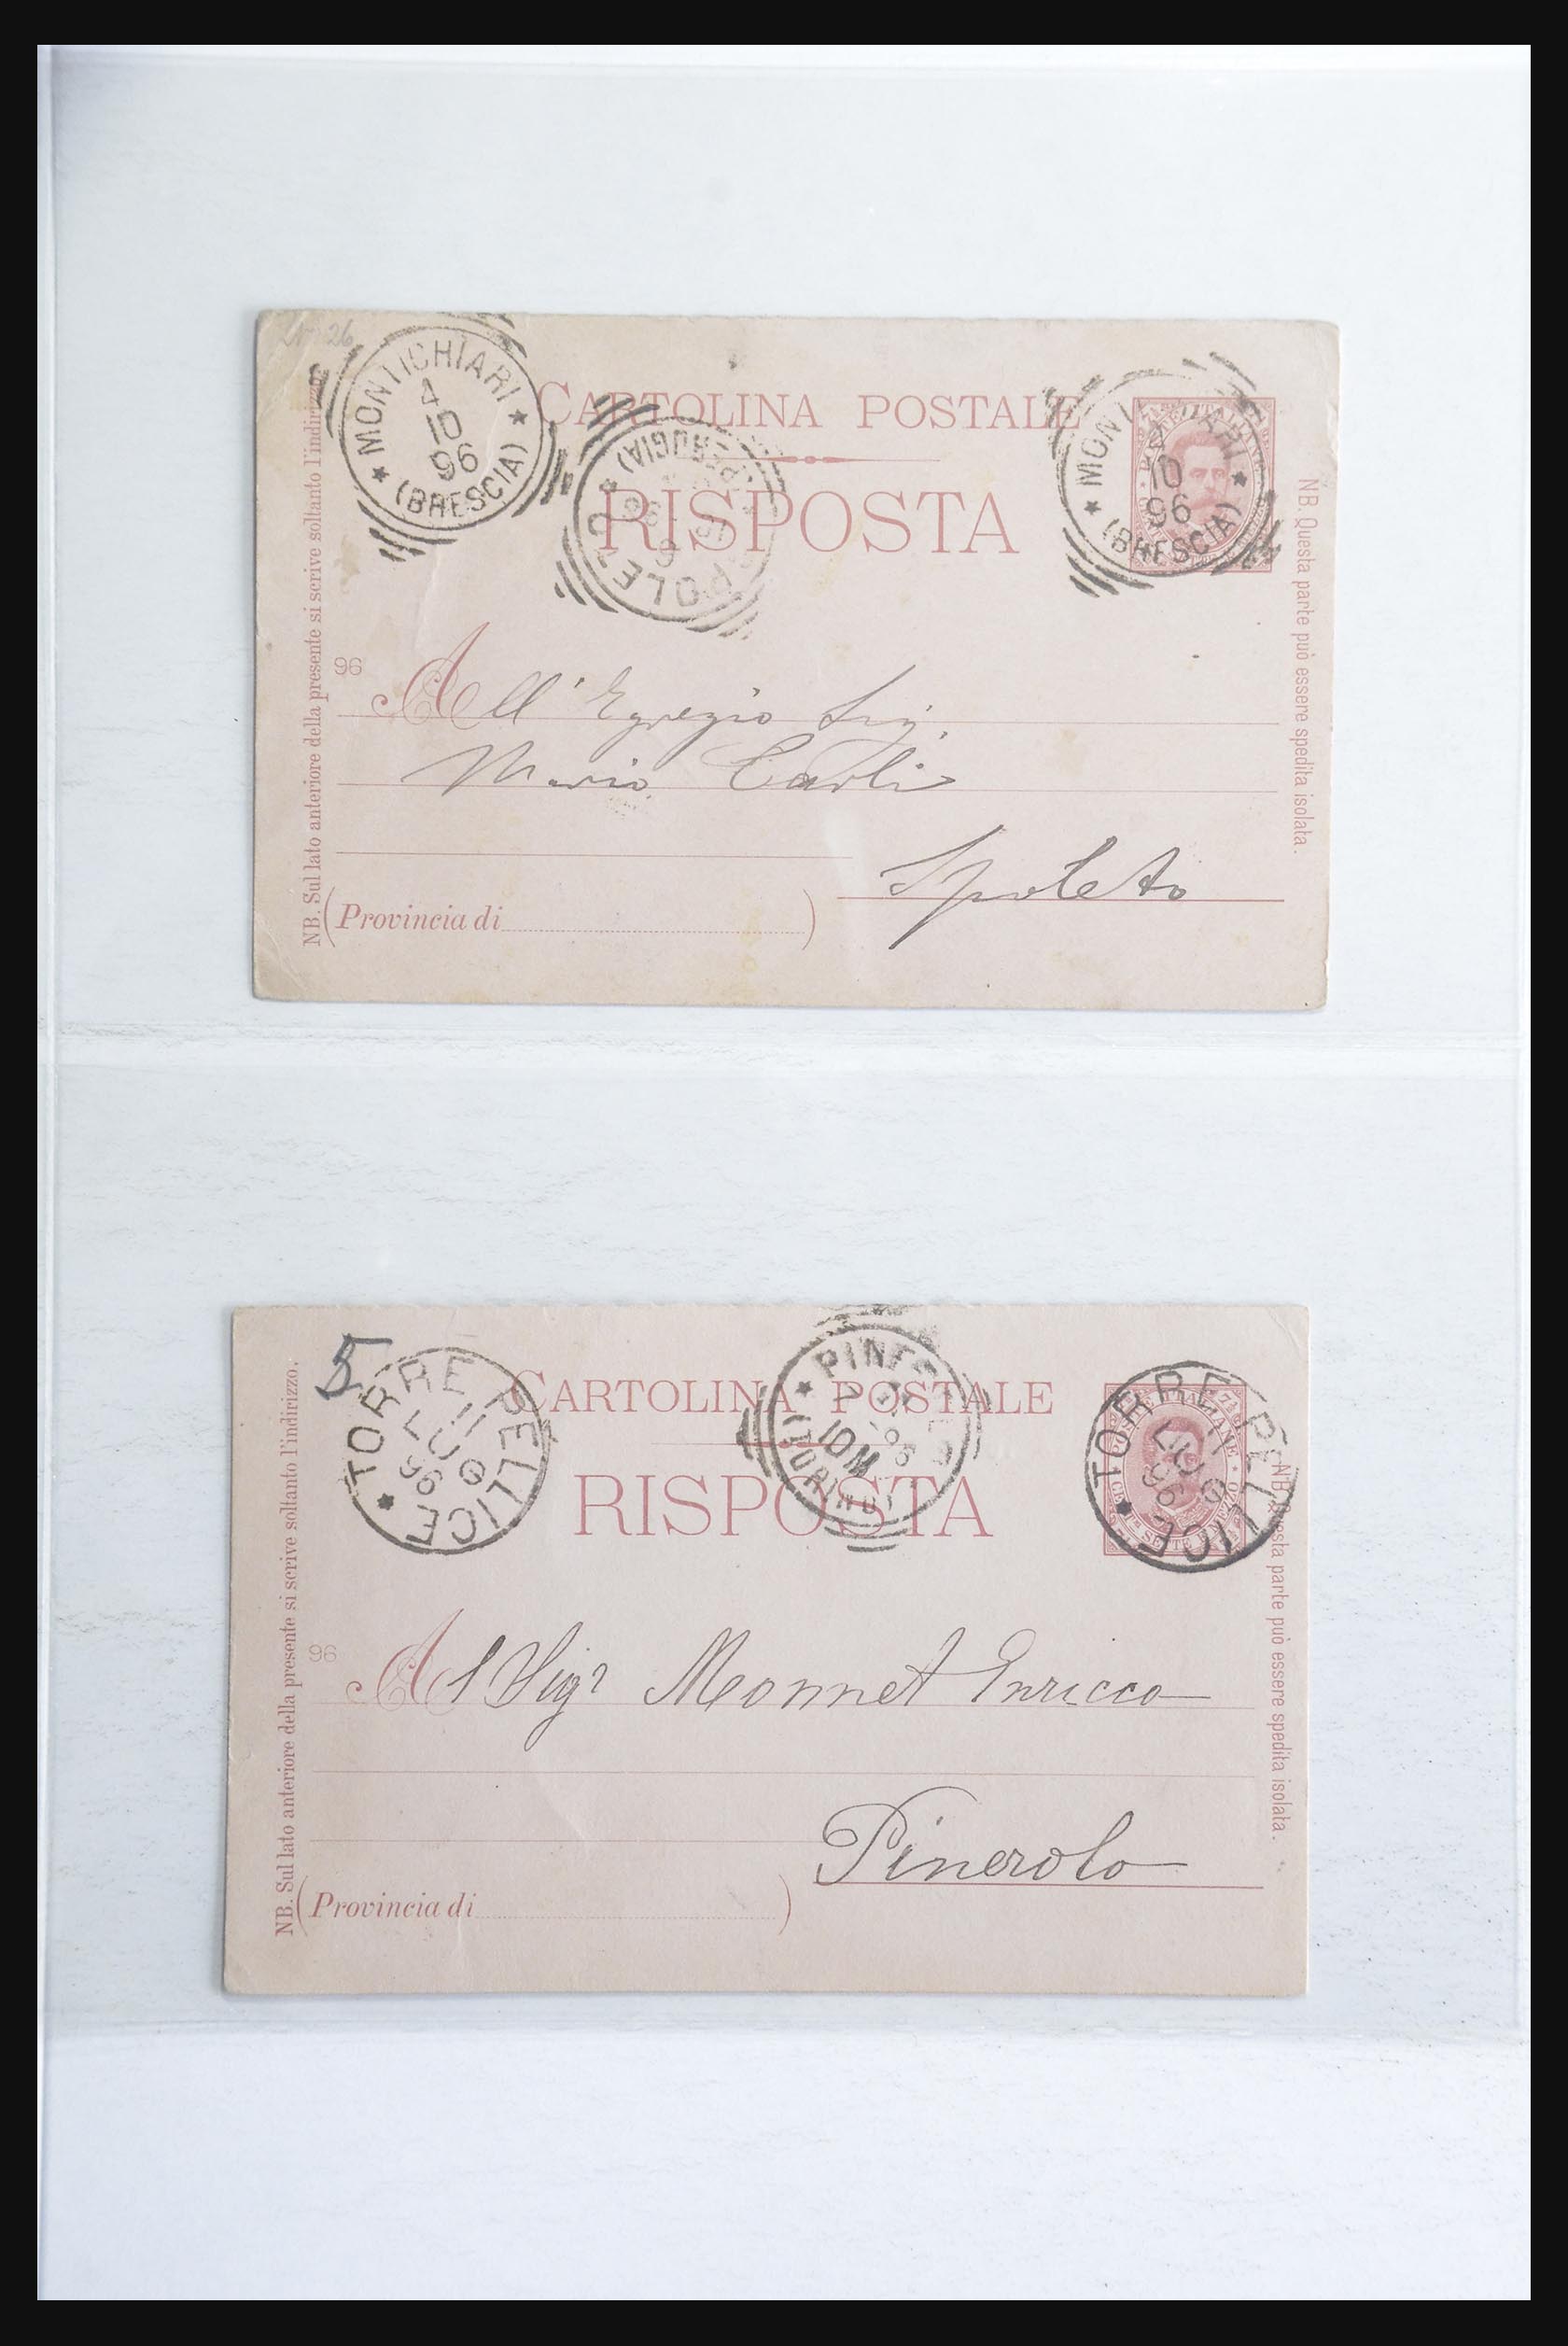 N° 26
MONTICHIARI
4
10
96
(BRESCIA)
CARTOLINA POSTALE
RISPOSTA
10
96
(BRESCIA)
NB. Sul lato anteriore della presente si scrive soltanto l'indirizzo.
NB. Questa parte può essere spedita isolata.
96
All' Egregio Sig.
Mario Carli
Spoleto
(Provincia di )
5
TORRE PELLICE
11
LUG
96
CARTOLINA POSTALE
RISPOSTA
10M
(TORINO)
TORRE PELLICE
11
LUG
96
NB. Sul lato anteriore della presente si scrive soltanto l'indirizzo.
NB. Questa parte può essere spedita isolata.
96
Al Sigr Monnet Enrico
Pinerolo
(Provincia di )